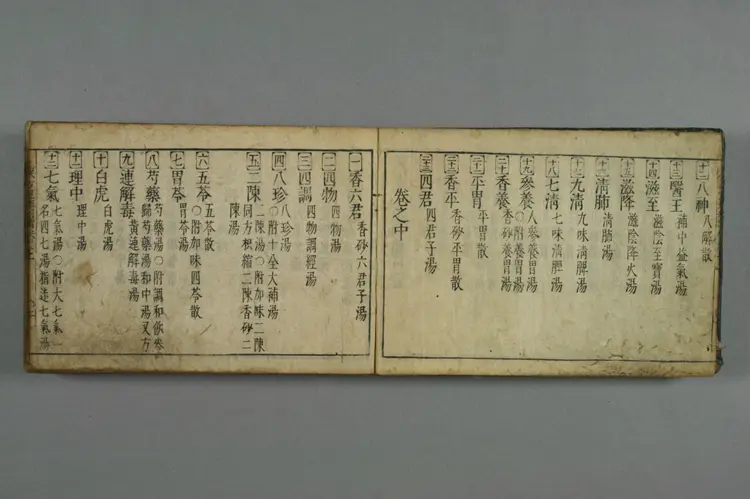 [十二]八神 八解散
[十三]醫王 補中益氣湯
[十四]滋至 滋陰至寶湯
[十五]滋降 滋陰降火湯
[十六]淸肺 淸肺湯
[十七]九淸 九味淸脾湯
[十八]七淸 七味淸脾湯
[十九]參養 人參養胃湯
〇附養胃湯
[二十]香養 香砂養胃湯
[二十一]平胃 平胃散
[二十二]香平 香砂平胃散
[二十三]四君 四君子湯
卷之中
[一]香六君 香砂六君子湯
[二]四物 四物湯
[三]四調 四物調經湯
[四]八珍 八珍湯
〇附十全大補湯
[五]二陳 二陳湯〇附加味二陳
同方根縮二陳香砂二
陳湯
[六]五苓 五苓散
〇附加味四苓散
[七]胃苓 胃苓湯
[八]芍藥 芍藥湯〇附調和飮
歸芍藥湯和中湯又方
[九]連解毒 黃連解毒湯
[十]白虎 白虎湯
[十一]理中 理中湯
[十二]七氣 七氣湯〇附大七氣
名四七湯指迷七氣湯